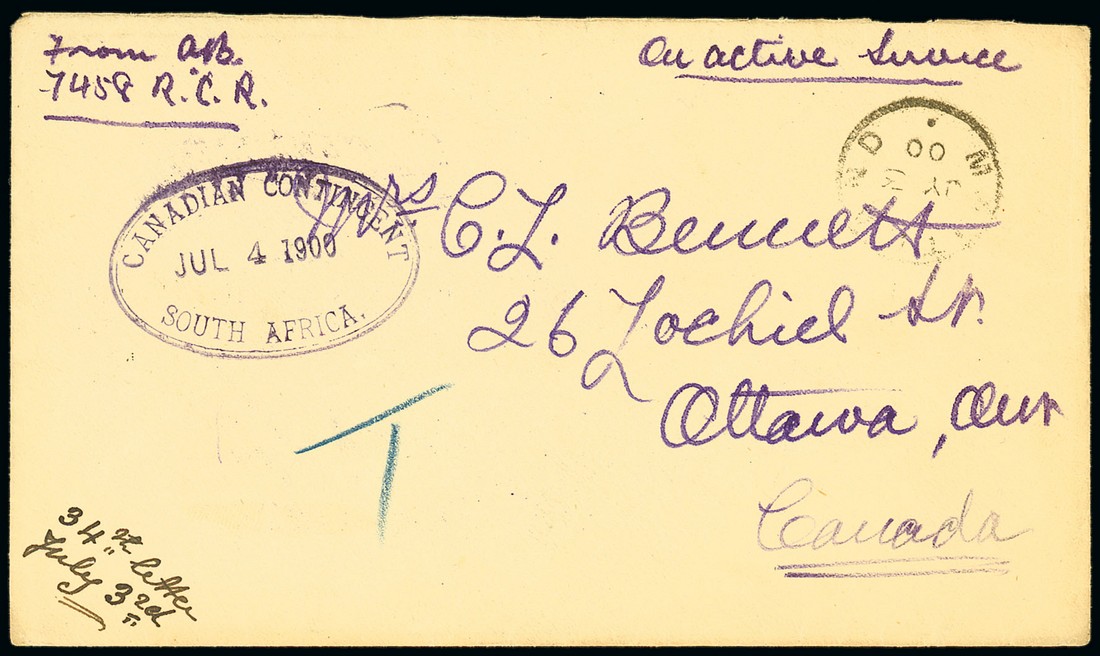 From A.B.
7458 R.C.R.
On active Service
CANADIAN CONTINGENT
JUL 4 1900
SOUTH AFRICA.
00
JY
Mrs C. L. Bennett
26 Lochiel St.
Ottawa, Ont
Canada
T
34"th letter
July 3"rd